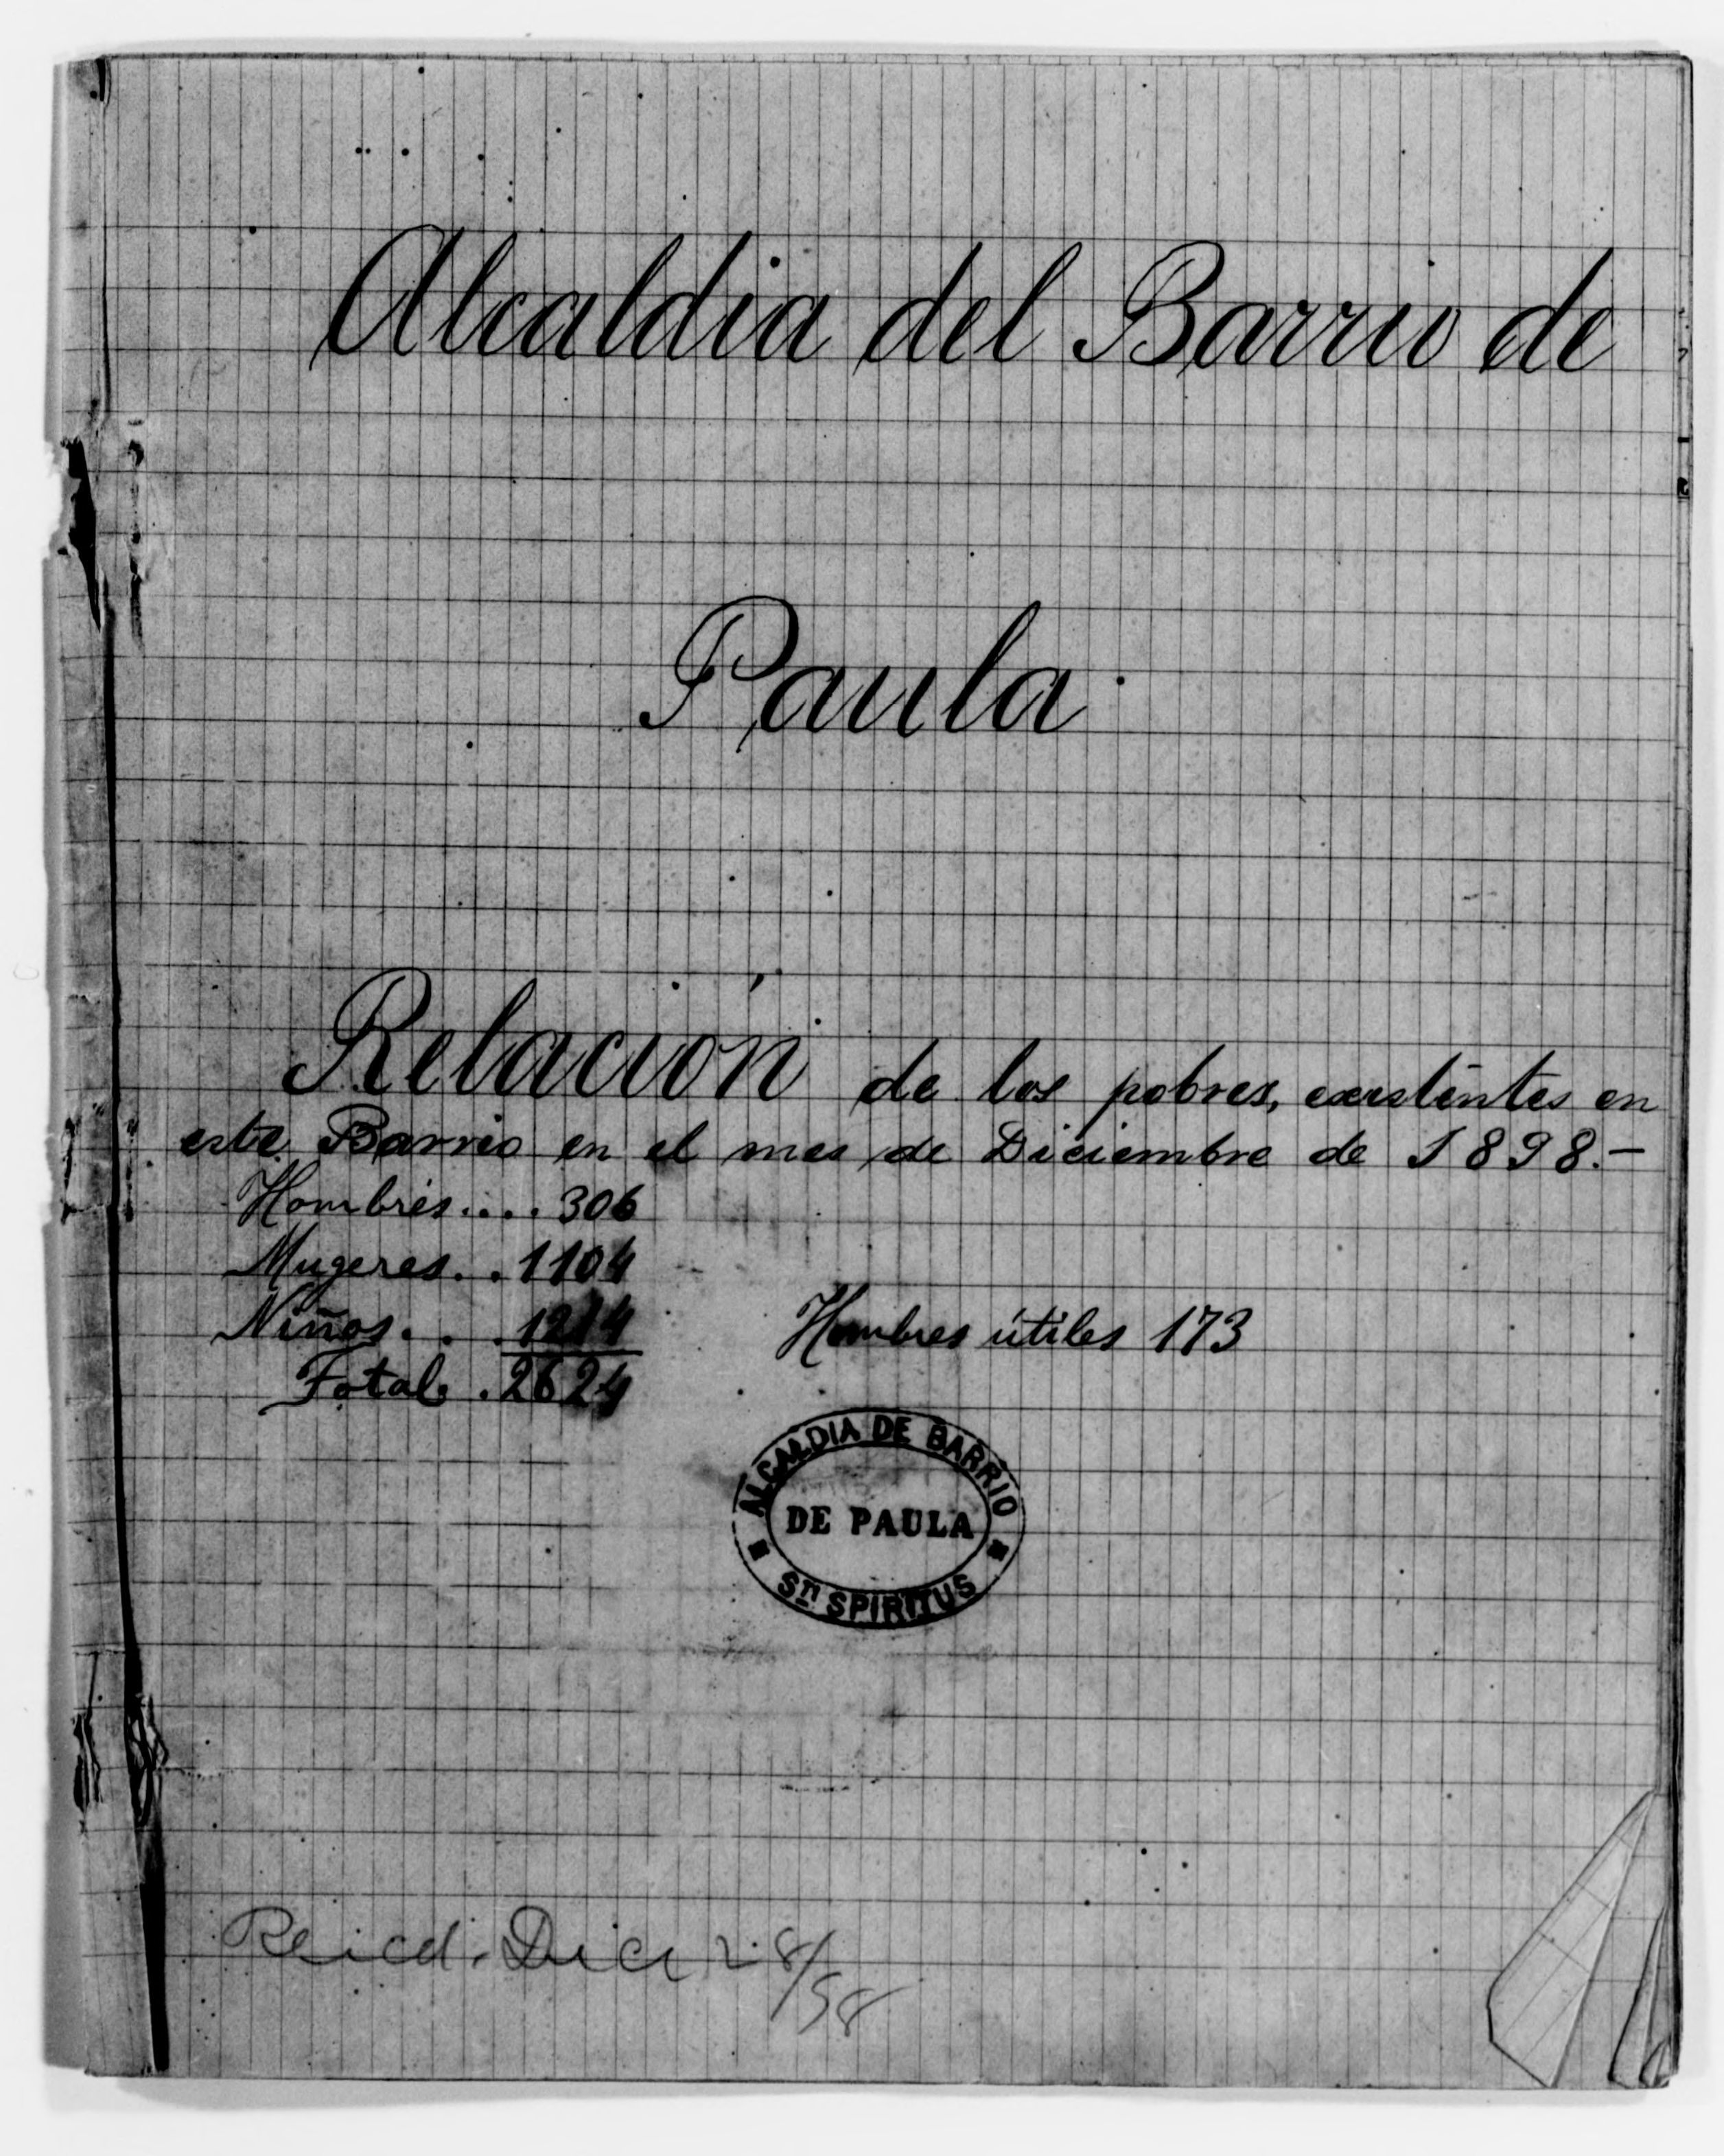 Alcaldia del Barrio de
Paula.
Relación de los pobres, existentes en
este Barrio en el mes de Diciembre de 1898.-
Hombres.... 306
Mugeres. . 1104
Niños. . . 1214
Total. . 2624
Hombres útiles 173
ALCALDIA DE BARRIO
DE PAULA
STI SPIRITUS
Recd. Dec 28/98